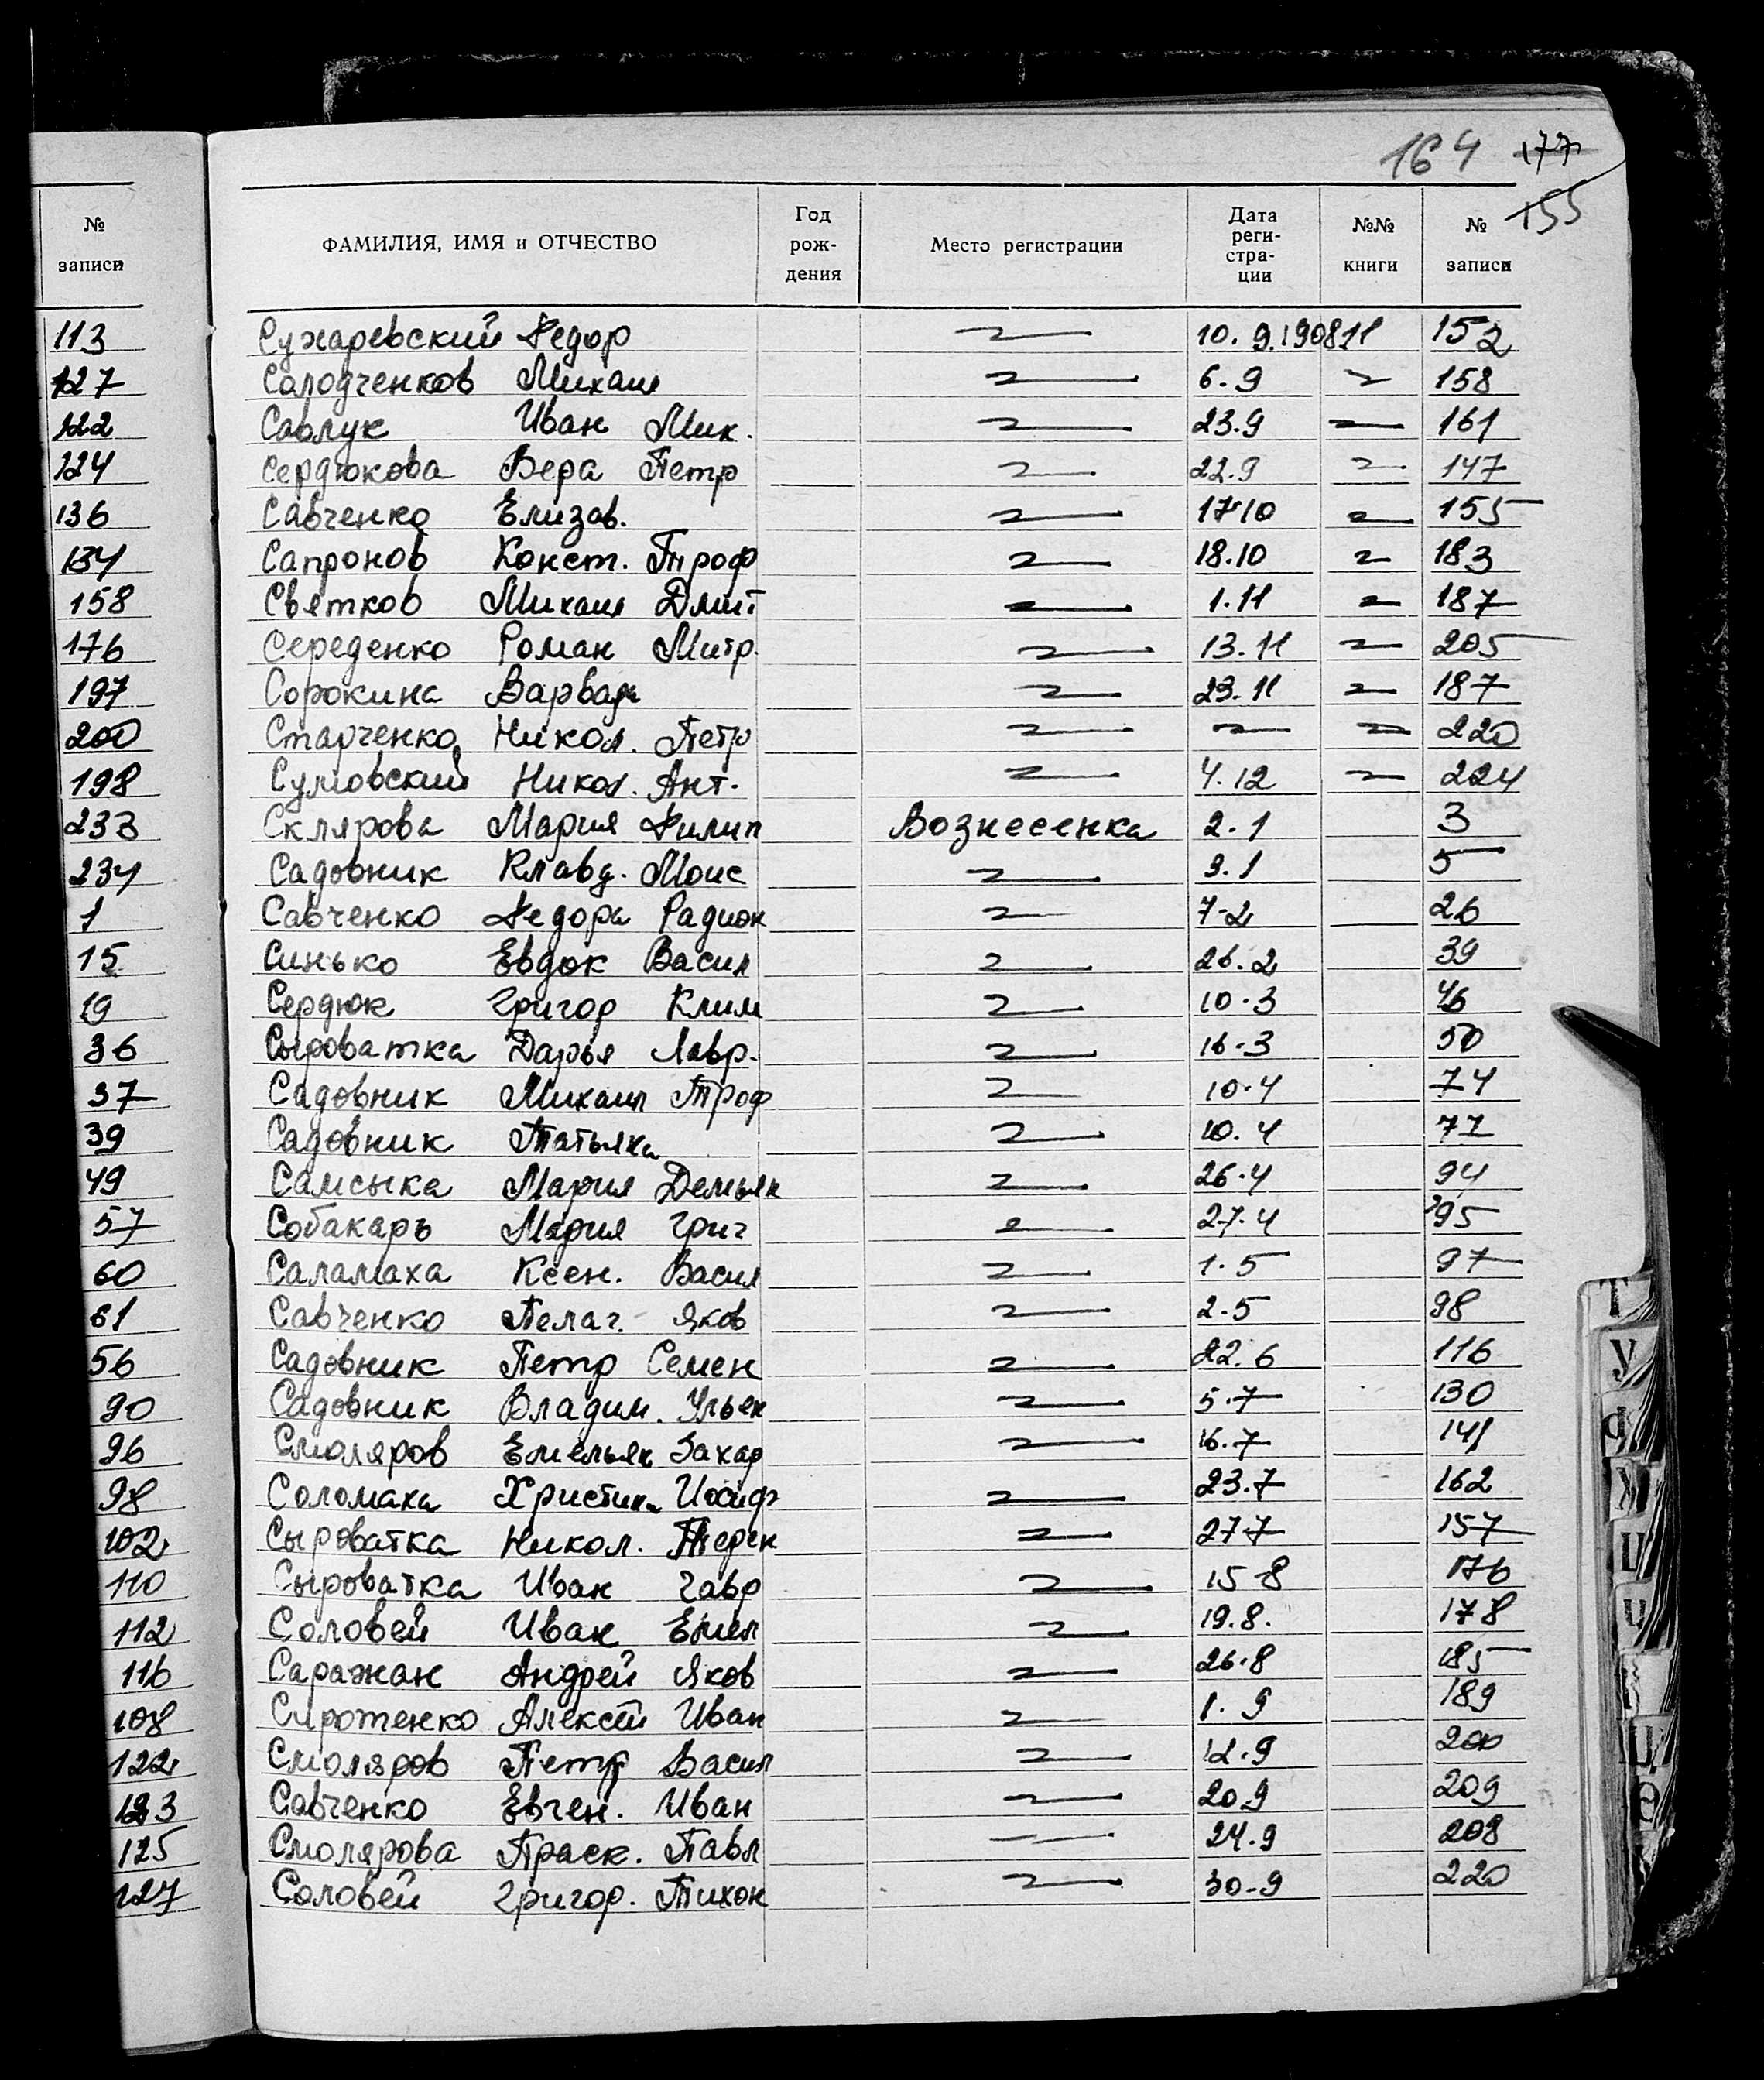 164 177
155
№ записи
ФАМИЛИЯ, ИМЯ и ОТЧЕСТВО Год рож- дения Место регистрации Дата реги- стра- ции №№ книги № записи
113 Сухаревский Федор 10.9.1908 11 152
127 Солодченков Михаил 6.9 158
122 Савлук Иван Мик. 23.9 161
124 Сердюкова Вера Петр 22.9 147
136 Савченко Елизав. 17.10 155
134 Сапронов Конст. Троф 18.10 183
158 Светков Михаил Дмит 1.11 187
176 Середенко Роман Митр. 13.11 205
197 Сорокина Варвара 23.11 187
200 Старченко Никол. Петр 220
198 Сумовский Никол. Ант. 4.12 224
233 Склярова Мария Филип Вознесенка 2.1 3
234 Садовник Клавд. Моис 3.1 5
1 Савченко Федора Радион 7-2 26
15 Синько Евдок Васил 26.2 39
19 Сердюк Григор Клим 10.3 46
36 Сыроватка Дарья Лавр. 16.3 50
37 Садовник Михаил Троф 10.4 74
39 Садовник Татьяна 10.4 77
49 Самсыка Мария Демьян 26.4 94
57 Собакарь Мария Григ 27.4 95
60 Саламаха Ксен. Васил 1.5 97
61 Савченко Пелаг. Яков 2.5 98
56 Садовник Петр Семен 22.6 116
90 Садовник Владим. Ульян 5.7 130
96 Смоляров Емельян Захар 16.7 141
98 Соломаха Христина Иосиф 23.7 162
102 Сыроватка Никол. Терен 27.7 157
110 Сыроватка Иван Гавр 15 8 176
112 Соловей Иван Емел 19.8. 178
116 Саражан Андрей Яков 26.8 185
108 Сиротенко Алексей Иван 1.9 189
122 Смоляров Петр Васил 12.9 200
123 Савченко Евген. Иван 20.9 209
125 Смолярова Праск. Павл 24.9 208
127 Соловей Григор. Тихон 30.9 220
Т
У
Ф
Х
Ц
Ч